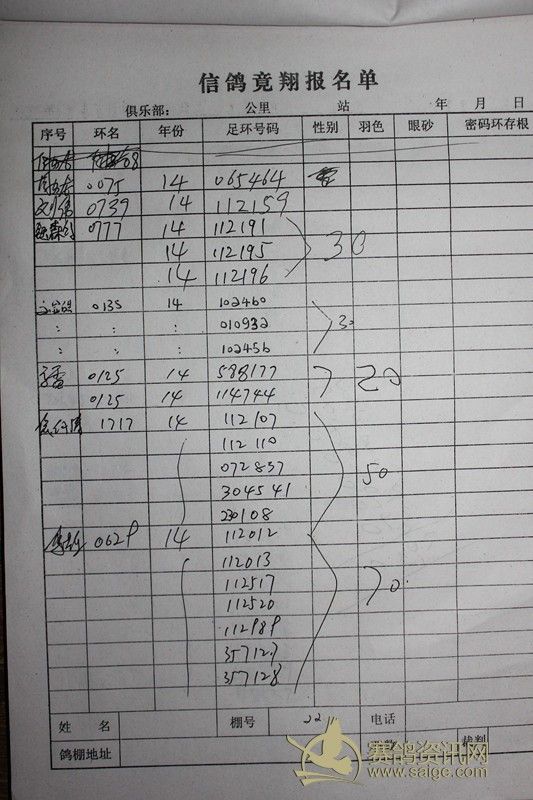 信鸽竟翔报名单
俱乐部： 公里 站 年 月 日
序号 环名 年份 足环号码 性别 羽色 眼砂 密码环存根
0075 14 065464
0739 14 112159
0777 14 112191
14 112195 30
14 112196
0135 14 102460
: : 010932 30
: : 102456
李雷 0125 14 598177 20
0125 14 114744
1717 14 112107
112110
072857 50
304541
230108
0629 14 112012
112013
112517 70
112520
112989
357127
357128
姓 名 棚号 22 电话
鸽棚地址 裁判
赛鸽资讯网
www.saige.com